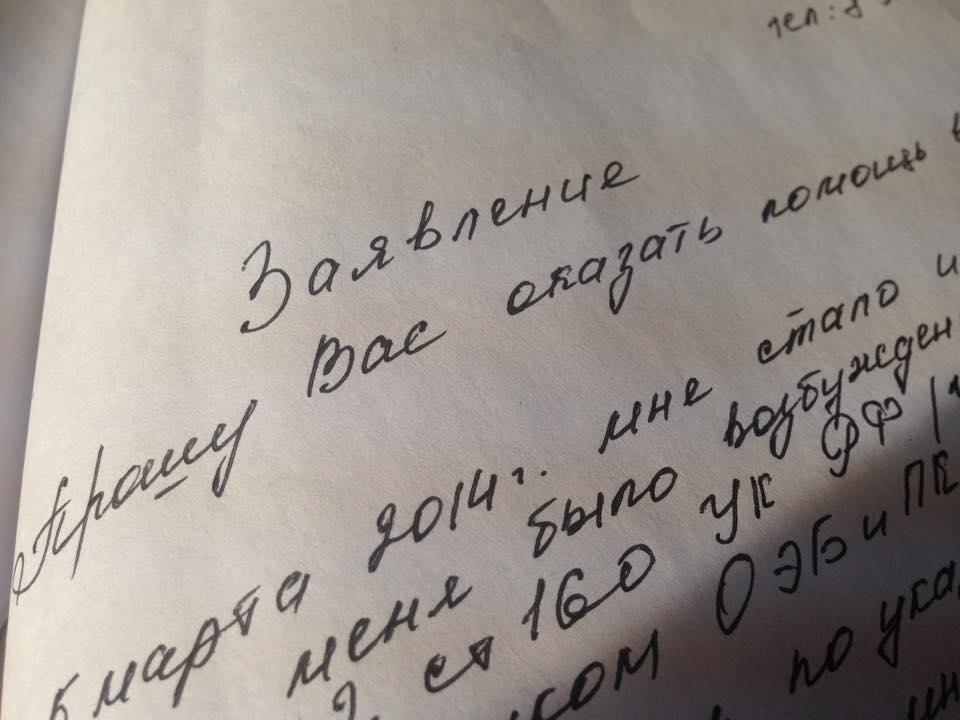 тел: 8
Заявление
Прошу Вас оказать помощь в
марта 2014г. мне стало и
меня было возбужден
ст 160 УК РФ (ч
ком ОЭБ и ПК
по ука